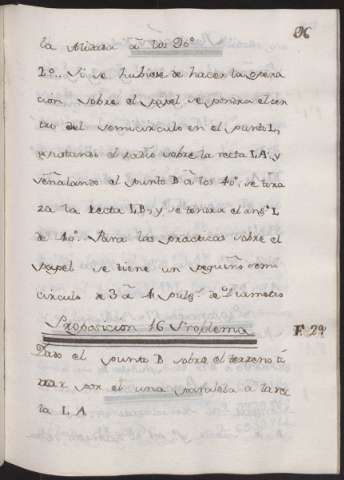 96
la Alidada á los 90°
2°.. Si se hubiese de hacer la opera
cion, sobre el papel se pondra el cen
tro del semicirculo en el punto L,
ajustando el radio sobre la recta LA, y
señalando el punto B á los 40°, se tira
za la recta LB, y se tendra el angº L
de 40°. Para las practicas sobre el
papel se tiene un pequeño semi
circulo de 3 á 4 pulgˢ de Diametro
Proposicion 16 Problema
F. 29
Dado el punto B sobre el terreno ti
rar por el una paralela á la rec
ta LA